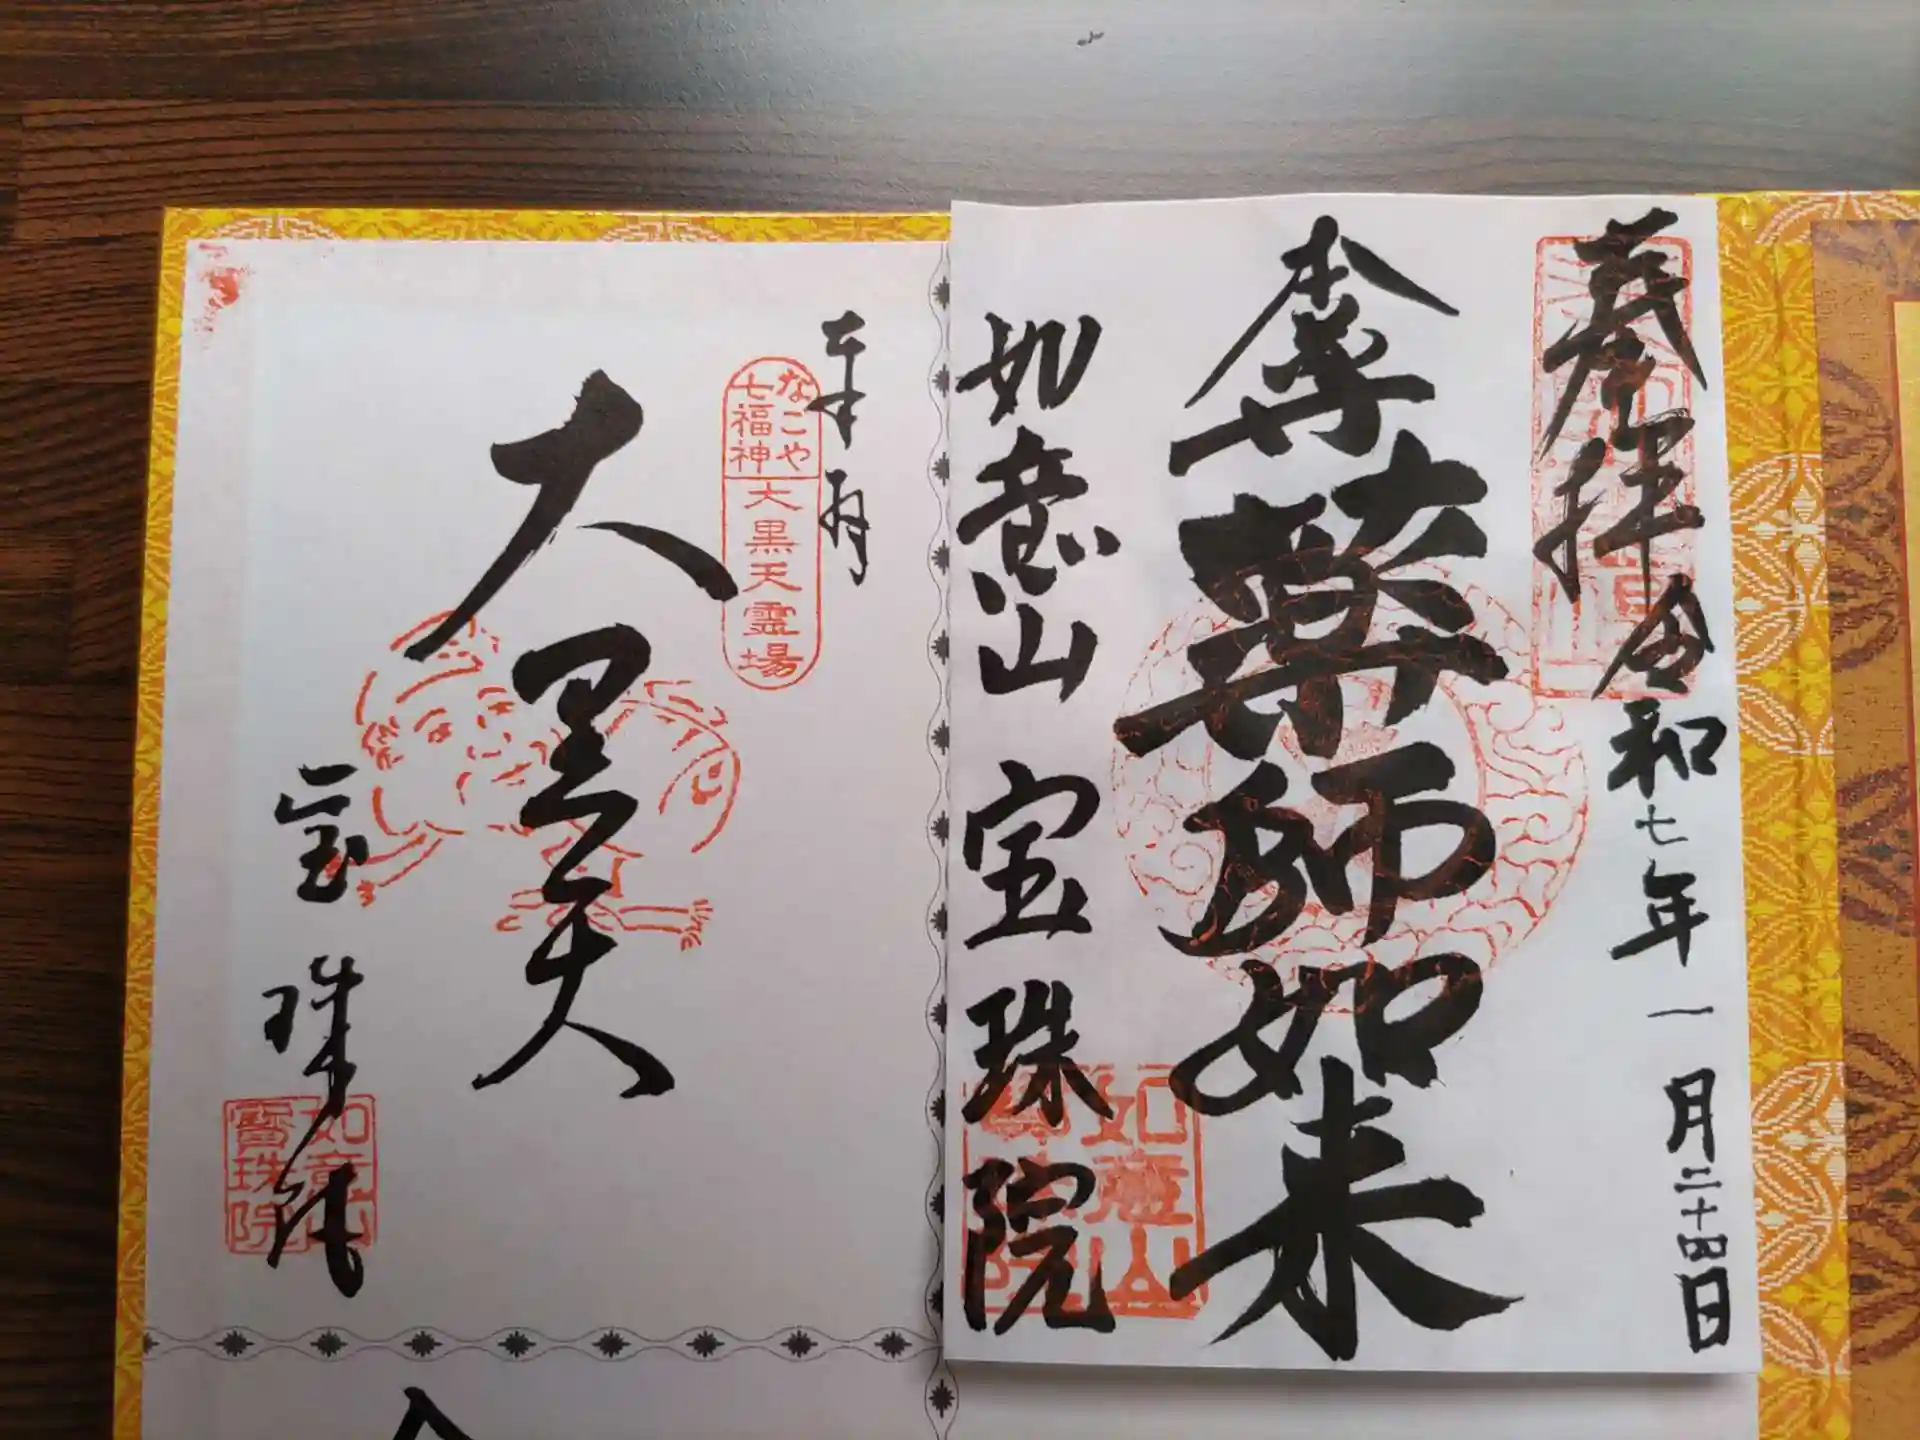 奉拝 令和七年一月二十四日
本尊
薬師如来
如意山 宝珠院
如意山
なごや
七福神
大黒天霊場
大黒天
宝珠院
如意山
寳珠院